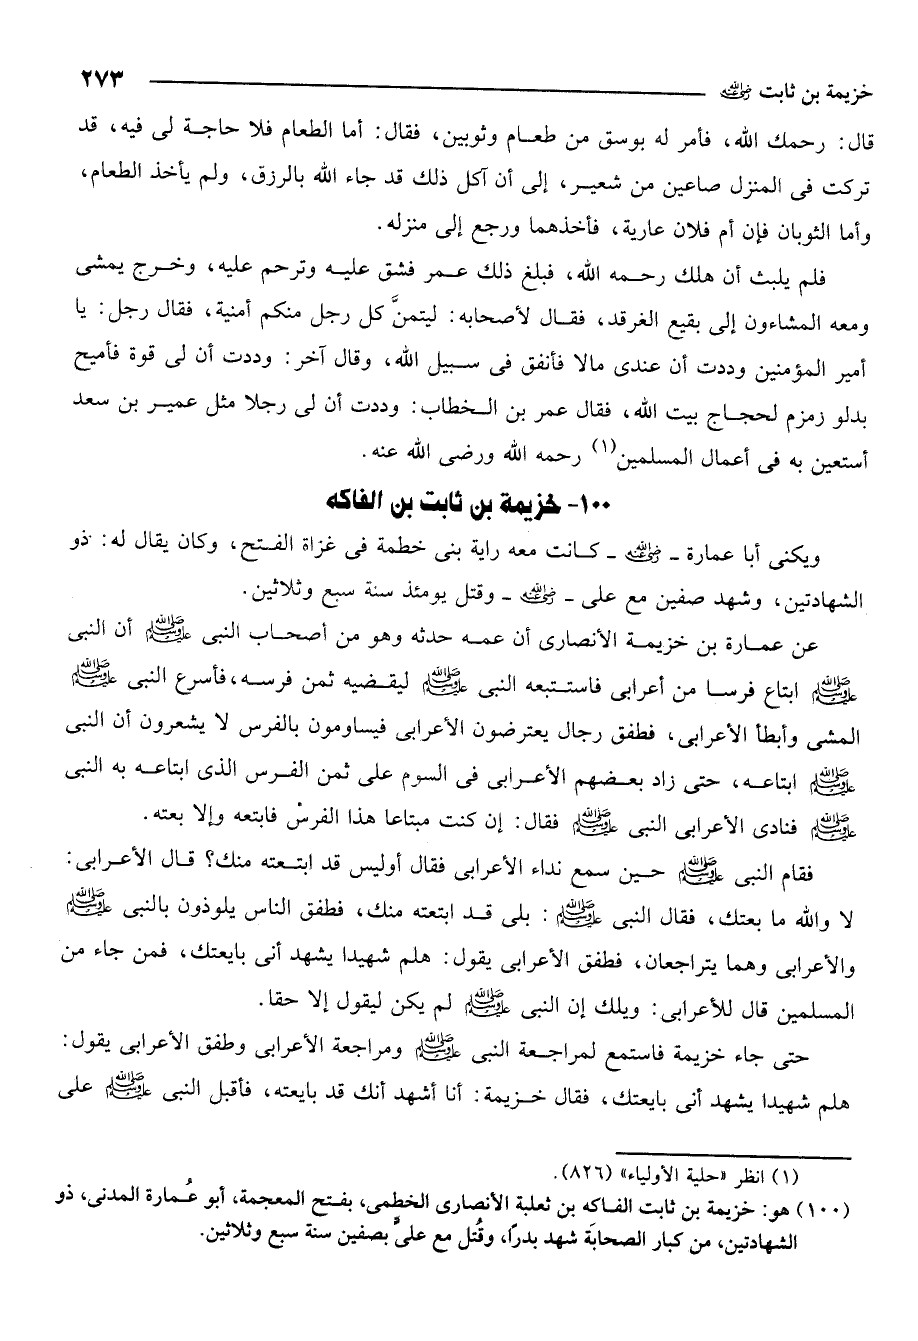 خزيمة بن ثابت رضي الله عنه ٢٧٣
قال: رحمك الله، فأمر له بوسق من طعام وثوبين، فقال: أما الطعام فلا حاجة لى فيه، قد
تركت فى المنزل صاعين من شعير، إلى أن آكل ذلك قد جاء الله بالرزق، ولم يأخذ الطعام،
وأما الثوبان فإن أم فلان عارية، فأخذهما ورجع إلى منزله.
فلم يلبث أن هلك رحمه الله، فبلغ ذلك عمر فشق عليه وترحم عليه، وخرج يمشى
ومعه المشاءون إلى بقيع الغرقد، فقال لأصحابه: ليتمنَّ كل رجل منكم أمنية، فقال رجل: يا
أمير المؤمنين وددت أن عندى مالا فأنفق فى سبيل الله، وقال آخر: وددت أن لى قوة فأميح
بدلو زمزم لحجاج بيت الله، فقال عمر بن الخطاب: وددت أن لى رجلا مثل عمير بن سعد
أستعين به فى أعمال المسلمين(١) رحمه الله ورضى الله عنه.
١٠٠- خزيمة بن ثابت بن الفاكه
ويكنى أبا عمارة ـ رضي الله عنه ـ كانت معه راية بنى خطمة فى غزاة الفتح، وكان يقال له: ذو
الشهادتين، وشهد صفين مع على ـ رضي الله عنه ـ وقتل يومئذ سنة سبع وثلاثين.
عن عمارة بن خزيمة الأنصارى أن عمه حدثه وهو من أصحاب النبى ﷺ أن النبى
ﷺ ابتاع فرسا من أعرابى فاستتبعه النبى ﷺ ليقضيه ثمن فرسه،فأسرع النبى ﷺ
المشى وأبطأ الأعرابى، فطفق رجال يعترضون الأعرابى فيساومون بالفرس لا يشعرون أن النبى
ﷺ ابتاعه، حتى زاد بعضهم الأعرابى فى السوم على ثمن الفرس الذى ابتاعه به النبى
ﷺ فنادى الأعرابى النبى ﷺ فقال: إن كنت مبتاعا هذا الفرسْ فابتعه وإلا بعته.
فقام النبى ﷺ حين سمع نداء الأعرابى فقال أوليس قد ابتعته منك؟ قال الأعرابى:
لا والله ما بعتك، فقال النبى ﷺ: بلى قد ابتعته منك، فطفق الناس يلوذون بالنبى ﷺ
والأعرابى وهما يتراجعان، فطفق الأعرابى يقول: هلم شهيدا يشهد أنى بايعتك، فمن جاء من
المسلمين قال للأعرابى: ويلك إن النبى ﷺ لم يكن ليقول إلا حقا.
حتى جاء خزيمة فاستمع لمراجعة النبى ﷺ ومراجعة الأعرابى وطفق الأعرابى يقول:
هلم شهيدا يشهد أنى بايعتك، فقال خزيمة: أنا أشهد أنك قد بايعته، فأقبل النبى ﷺ على
(١) انظر «حلية الأولياء» (٨٢٦).
(١٠٠) هو: خزيمة بن ثابت الفاكه بن ثعلبة الأنصارى الخطمى، بفتح المعجمة، أبو عُمارة المدنى، ذو
الشهادتين، من كبار الصحابَة شهد بدرًا، وقُتل مع علىٍّ بصفين سنة سبع وثلاثين.